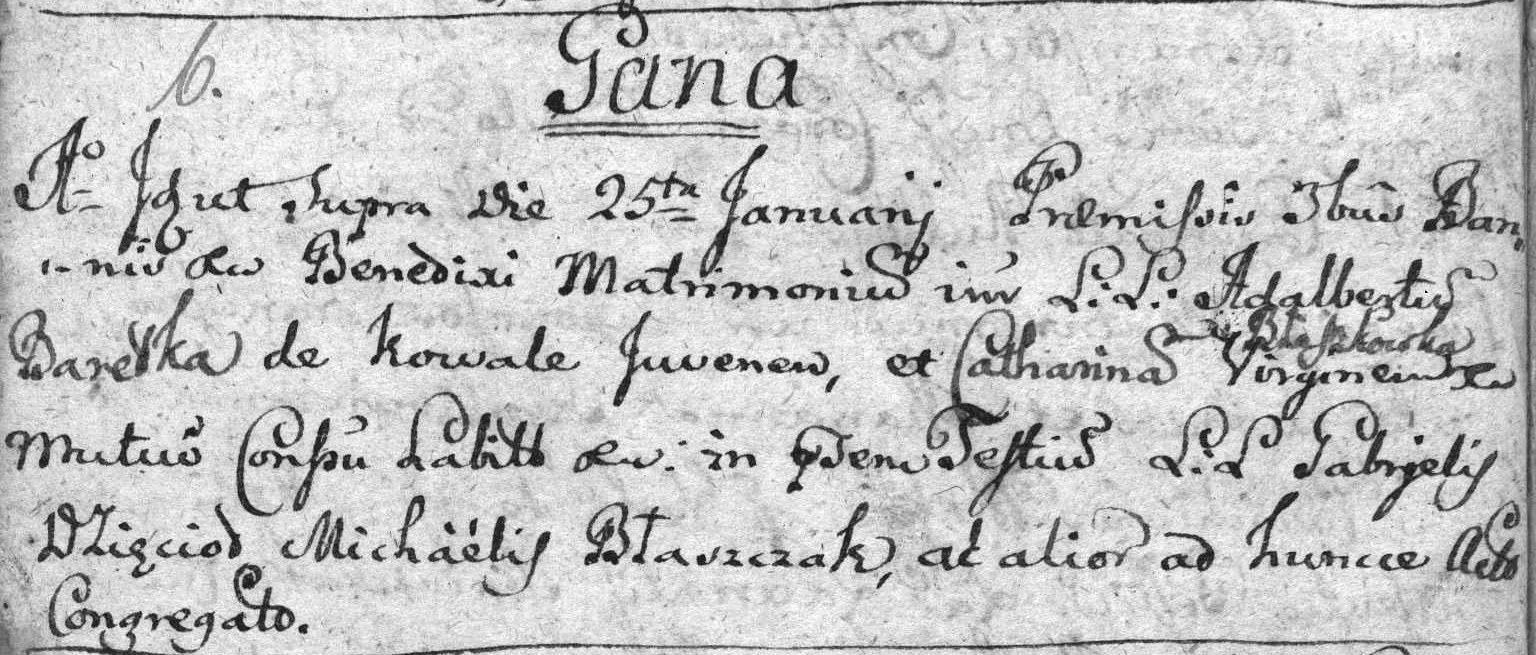 6.
Gana
Aõ Iq̃ut Supra Die 25ta Januarij Præmissis 3bus Ban„
„nis &c Benedixi Matrimoniũ inr L: L: Adalbertũ
Barełka de Kowale Juvenem, et Catharinã Błaszkowska Virginem &c
Mutuõ Consu habito &c: in pdem Testiũ L: L Gabrjelis
Dzięcioł Michäélis Błaszczak, ac alior ad hunce Acto
Congregato.